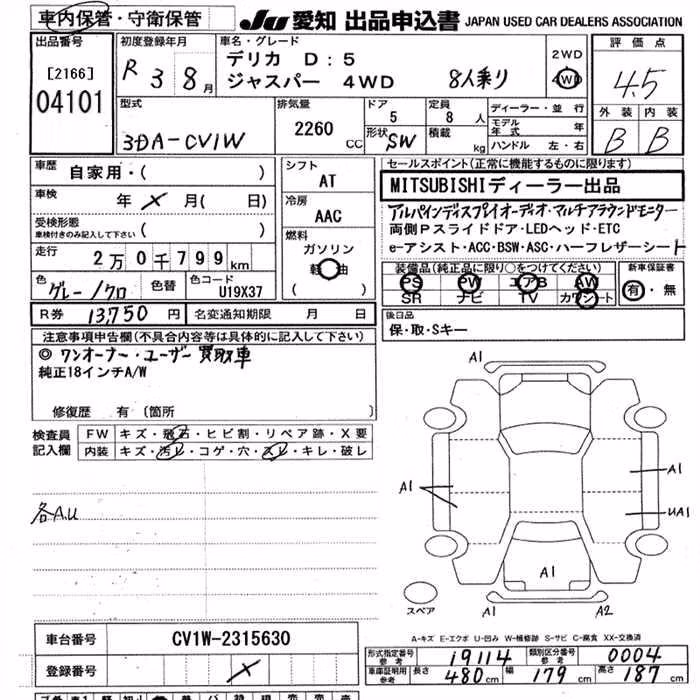 車内保管・守衛保管 JU 愛知 出品申込書 JAPAN USED CAR DEALERS ASSOCIATION
出品番号 [2166] 04101
初度登録年月 R 3 8月
車名・グレード デリカ D:5 ジャスパー 4WD 8人乗り
2WD 4WD
評価点 4.5
外装 内装
B B
型式 3DA-CV1W
排気量 2260 CC
ドア 5
形状 SW
定員 8 人
積載 kg
ディーラー・並行
モデル年式 年
ハンドル 左・右
車歴 自家用・( )
車検 年 メ 月( 日)
受検形態 (車検付きのみ記入して下さい)( )
走行 2万0千799km
色 グレー/クロ 色替 色コード U19X37
シフト AT
冷房 AAC
燃料 ガソリン 軽油 ( )
セールスポイント(正常に機能するものに限ります)
MITSUBISHIディーラー出品
アルパインディスプレイオーディオ・マルチアラウンドモニター
両側Pスライドドア・LEDヘッド・ETC
e-アシスト・ACC・BSW・ASC・ハーフレザーシート
装備品(純正品に限り○をつけてください)
PS PW エアB AW
SR ナビ TV カワシート
新車保証書 有・無
R券 13,750 円 名変通知期限 月 日
後日品
保・取・Sキー
注意事項申告欄(不具合内容等は具体的に記入して下さい)
◎ ワンオーナー・ユーザー買取車
純正18インチA/W
修復歴 有 〔箇所 〕
検査員記入欄
FW キズ・飛石・ヒビ割・リペア跡・X要
内装 キズ・汚レ・コゲ・穴・スレ・キレ・破レ
各A.U
A1
A1
A1
UA1
A1
A1
A2
スペア
A-キズ E-エクボ U-凹み W-補修跡 S-サビ C-腐食 XX-交換済
車台番号 CV1W-2315630
登録番号 メ
形式指定番号 参考 19114 類別区分番号 参考 0004
車庫証明用 参考 長さ 480cm 幅 179cm 高さ 187cm